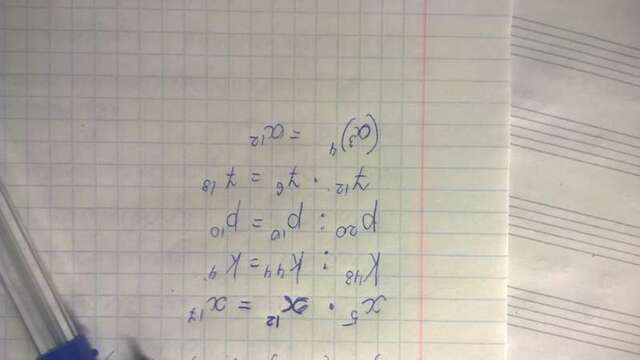 x⁵ · x¹² = x¹⁷
k⁴⁸ : k⁴⁴ = k⁴
p²⁰ : p¹⁰ = p¹⁰
7¹² · 7⁶ = 7¹⁸
(a³)⁴ = a¹²